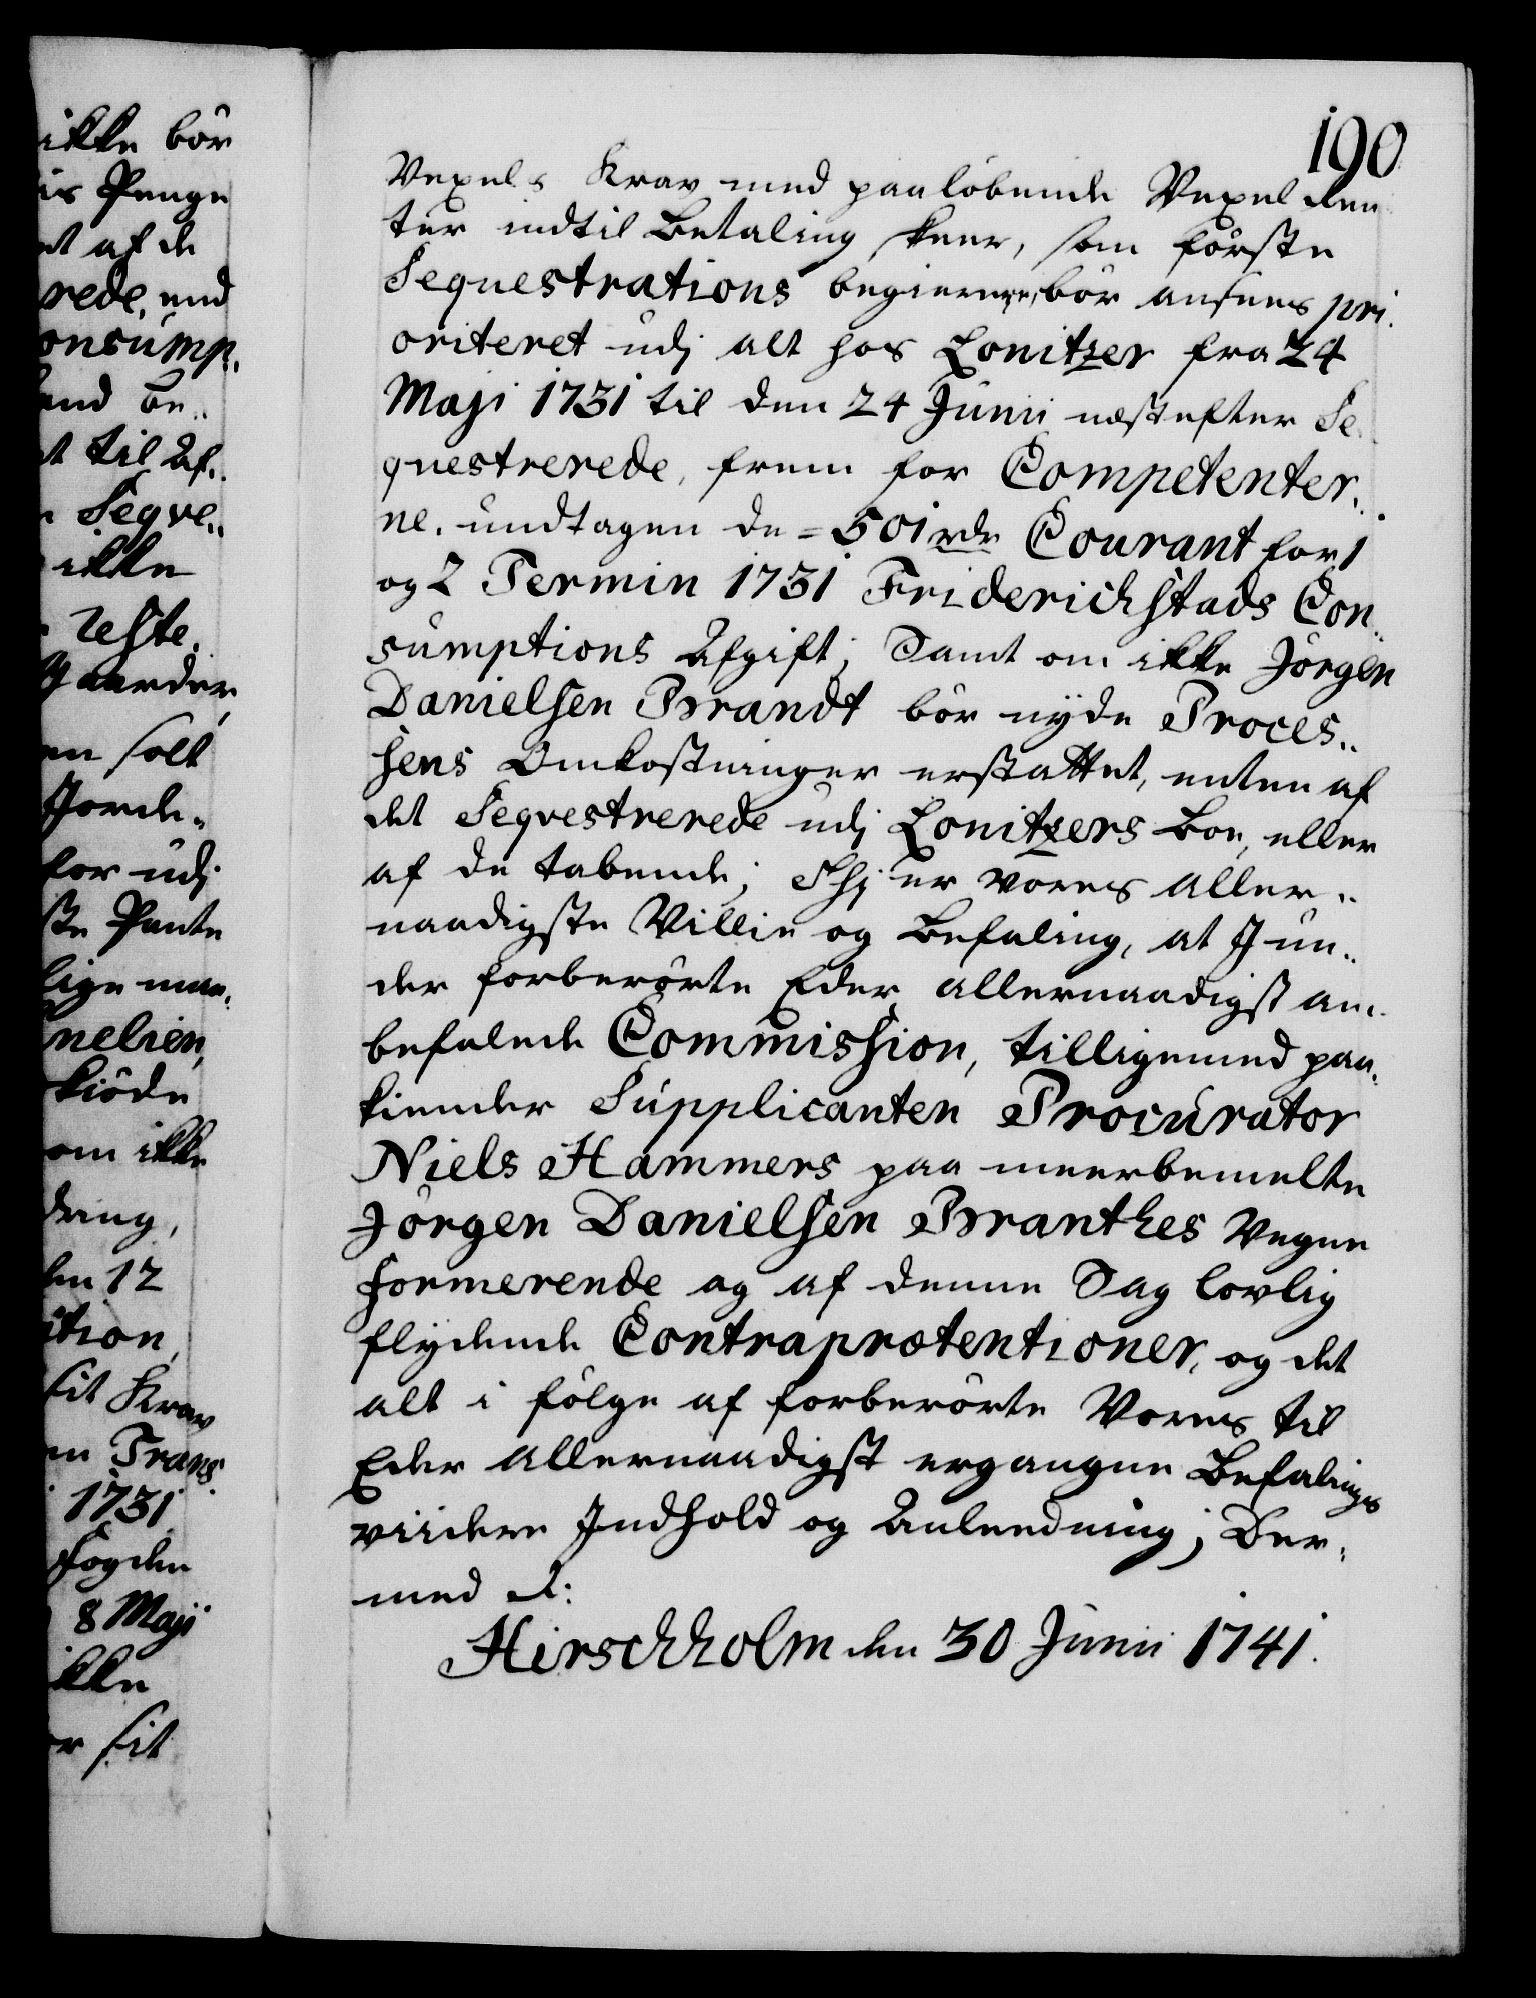 190
Vexels Krav med paaløbende Vexel Ren
ter indtil Betaling skeer, som første
Sequestrations begierere, bør ansees pri-
oriteret udj alt hos Lonitzer fra 24
Maji 1731 til den 24 Junii næstefter Se
questrerede, frem for Competenter-
ne, undtagen de = 501 rdr Courant for 1
og 2 Termin 1731 Friderichstads Con-
sumptions Afgift; Samt om ikke Jørgen
Danielsen Brandt bør nyde Proces-
sens Omkostninger erstattet, enten af
det Seqvestrerede udj Lonitzers Boe, eller
af de tabende; Thj er Vores Aller-
naadigste Villie og Befaling, at I un-
der forberørte Eder allernaadigst an-
befalede Commission, tilligemed paa-
kiender Supplicanten Procurator
Niels Hammers paa meerbemelte
Jørgen Danielsen Branthes Vegne
formerende og af denne Sag lovlig
flydende Contraprætentioner, og det
alt i følge af forberørte Vores til
Eder Allernaadigst ergangne Befalings
viidere Indhold og Anleedning; Der-
med etc:
Hirschholm den 30 Junii 1741.
ikke bør
is Penge
et af de
rede, end
onsump-
and be-
t til Af-
Seqve-
ikke
Reste
Gaarder
en solt
Jorde-
for udj
ste Pante
lige maa-
nelien,
kiøde
om ikke
dring,
den 12
ition,
sit Krav
en Trans
1731
Fogden
8 Maji
ikke
er sit